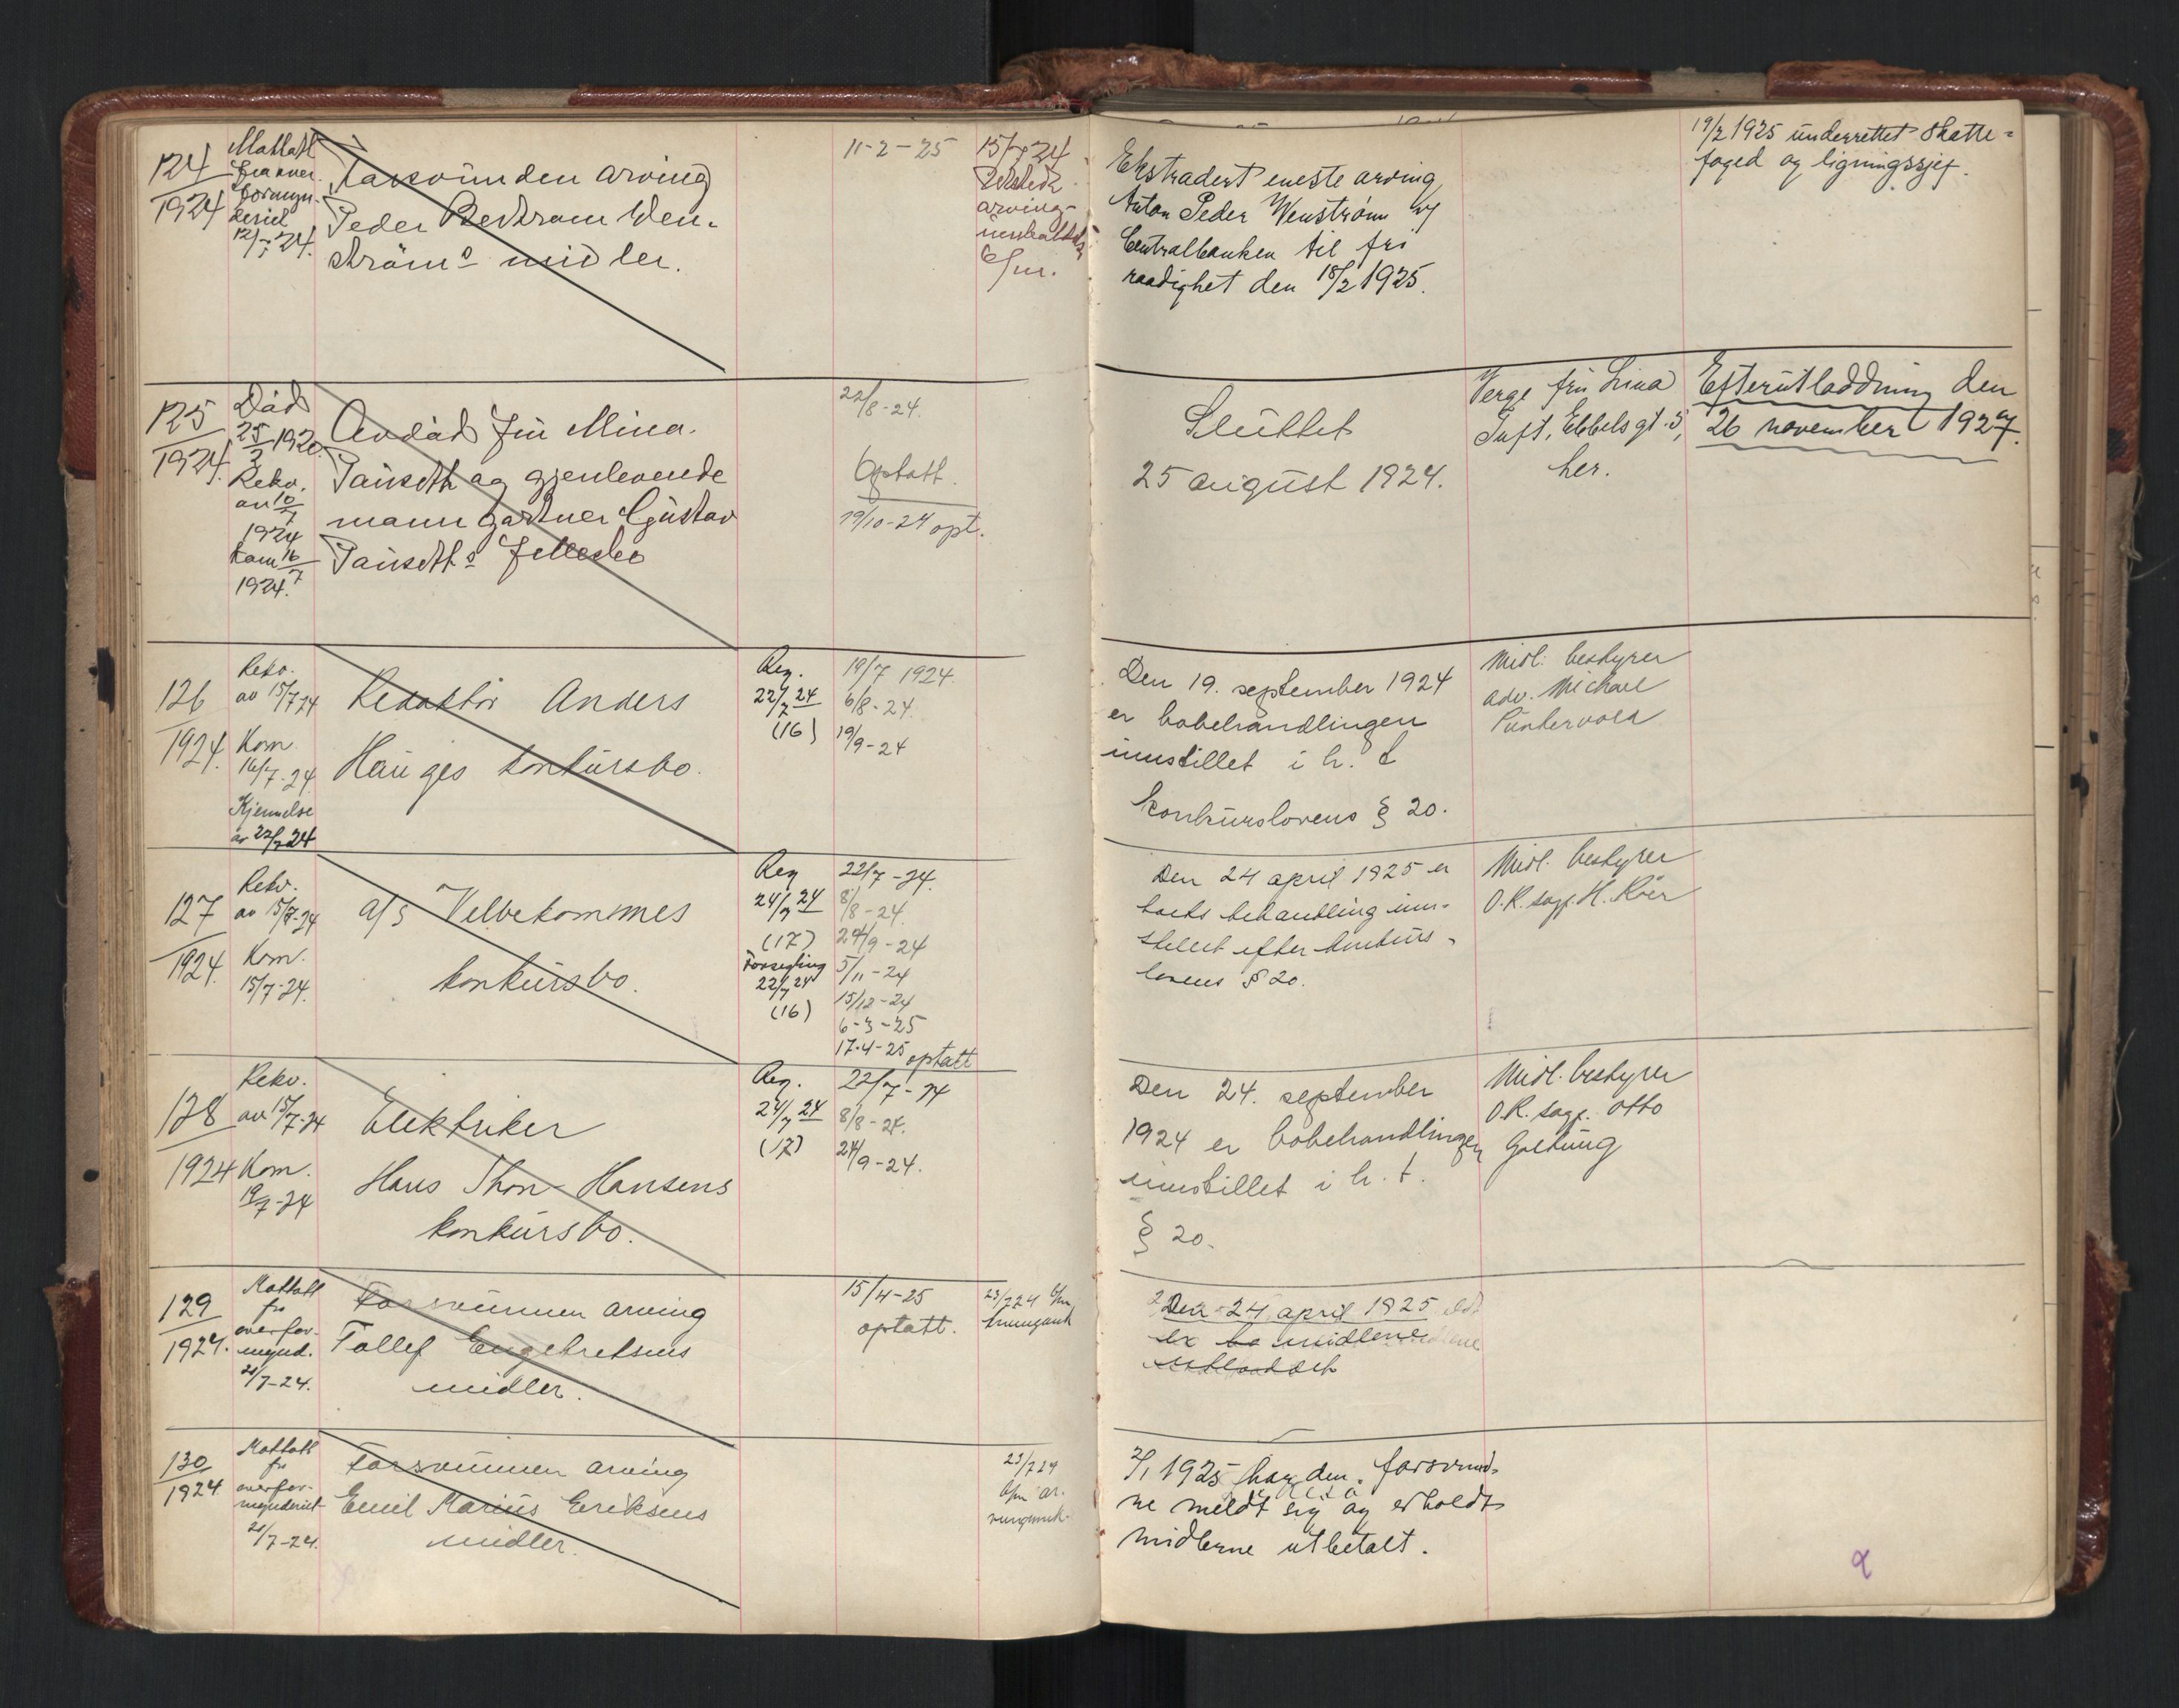 124
1924
Mottatt
fra over-
formyn-
deriet
12/7 24.
Forsvunden arving
Peder Bertram Wen-
strøms midler.
11-2-25
15/7 24
6/m.
Ekstradert eneste arving
Anton Peder Wenstrøm v/
Centralbanken til fri
raadighet den 18/2 1925.
19/2 1925 underrettet skatte-
foged og ligningssjef.
125
1924.
Død
25/3 1920.
Rekv.
av 10/7
1924
kom 16/7
1924.
Avdød fru Mina
Tauseth og gjenlevende
mann gartner Gustav
Tauseths fellesbo
22/8-24.
Optatt.
19/10-24 opt.
Sluttet
25 august 1924.
Verge fru Lina
Tuft, Ebbels gt. 5,
her.
Efterutloddning den
26 november 1927.
126
1924.
Rekv.
av 15/7 24
Kom.
16/7-24
Kjennelse
av 22/7 24
Redaktør Anders
Hauges konkursbo.
Reg.
22/7 24
(16)
19/7 1924.
6/8-24.
19/9-24
Den 19. september 1924
er bobehandlingen
innstillet i h. t.
konkurslovens § 20.
Midl. bestyrer
adv. Michael
Puntervold
127
1924.
Rekv.
av 15/7-24
Kom.
15/7-24.
A/S Velbekommes
konkursbo.
Reg
24/7 24
(17)
Forsegling
22/7 24
(16)
22/7-24.
8/8-24.
24/9-24
5/11-24
15/12-24
6-3-25
17-4-25 optatt
Den 24 april 1925 er
boets behandling inn-
stillet efter konkurs-
lovens § 20.
Midl. bestyrer
O.R. sagf. H. Röer
128
1924
Rekv.
av 15/7-24
Kom.
19/7-24
Elektriker
Hans Thon Hansens
konkursbo.
Reg.
24/7 24
(17)
22/7-24
8/8-24.
24/9-24.
Den 24. september
1924 er bobehandlingen
innstillet i h. t.
§ 20.
Midl. bestyrer
O.R. sagf. Otto
Galtung
129
1924.
Mottatt
fra
overfor-
mynd.
21/7-24.
Forsvunnen arving
Tollef Engebretsens
midler.
15/4-25
optatt.
23/7 24
Den 24 april 1925
er bo midlene
130
1924
Mottatt
fra
overfor-
mynderiet
21/7-24.
Forsvunnen arving
Emil Marius Eriksens
midler.
23/7 24
2/1 1925 har den forsvund-
ne meldt sig og erholdt
midlerne utbetalt.